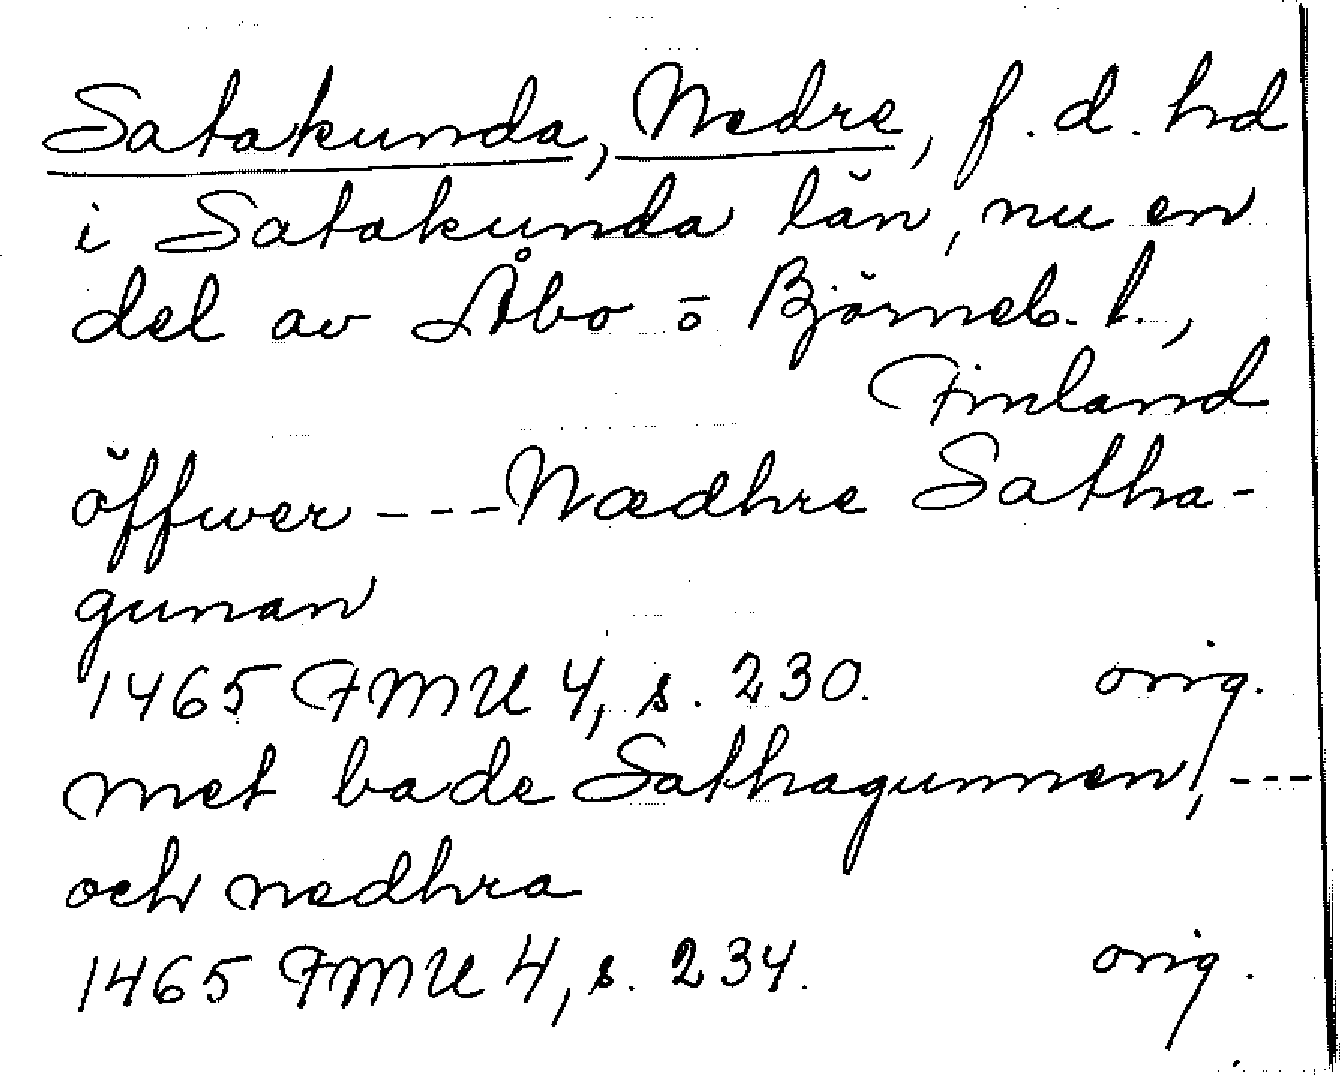 Satakunda, Nedre, f. d. hd
i Satakunda län, nu en
del av Åbo o Björneb. l.,
Finland
öffwer --- Nædhre Satha-
gunan
1465 FMU 4, s. 230. orig.
met bade Sathagunnen, ---
och nedhra
1465 FMU 4, s. 234. orig.